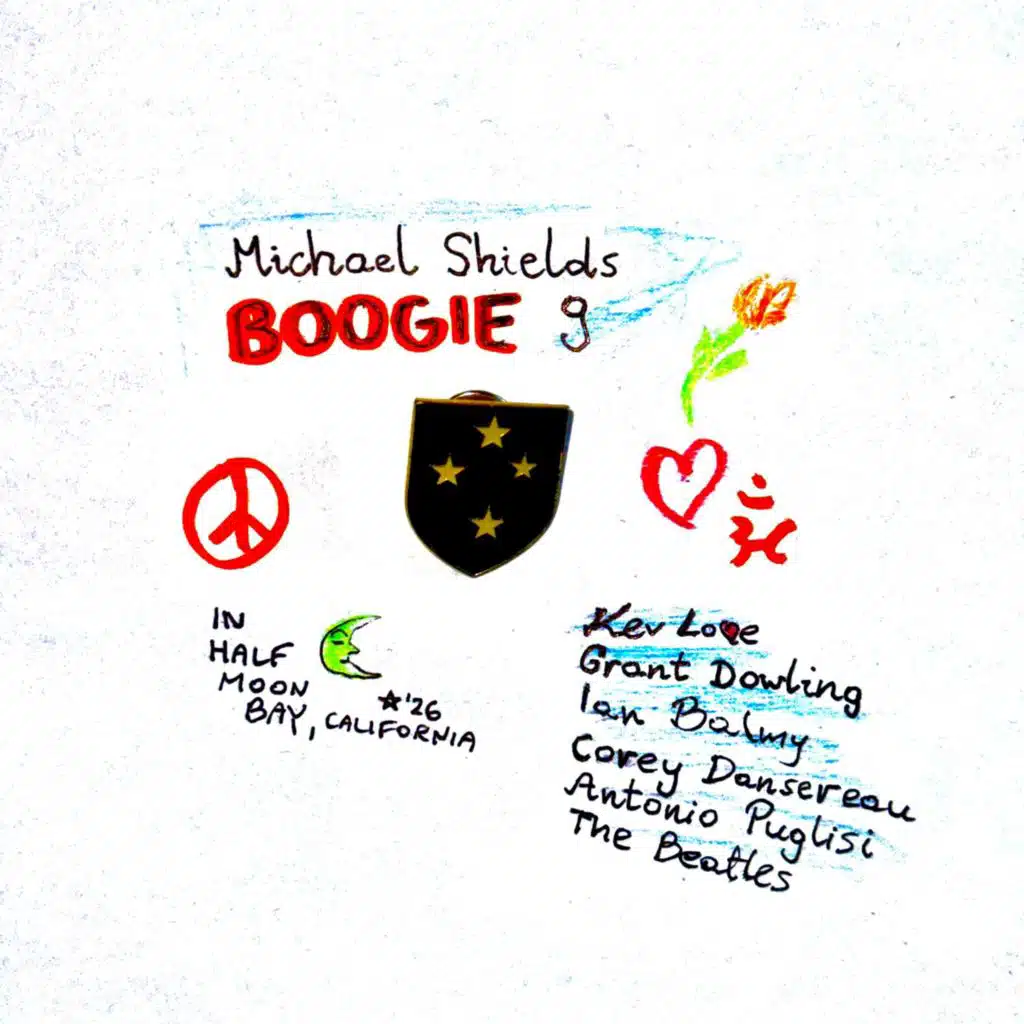 Michael Shields
BOOGIE 9
IN
HALF
MOON
BAY, CALIFORNIA
★'26
Kev Love
Grant Dowling
Ian Balmy
Corey Dansereau
Antonio Puglisi
The Beatles